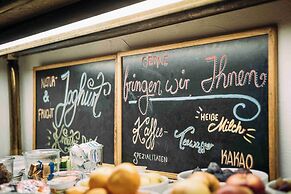 NATUR-
&
FRUCHT
Joghurt
GERNE
bringen wir Ihnen
Kaffee-
SPEZIALITÄTEN
Teewasser
HEIßE
Milch
KAKAO